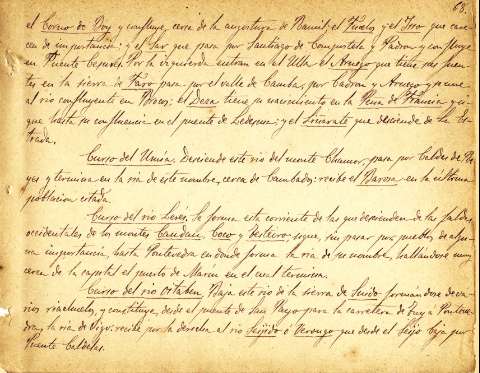 68.
el Corno de Boy y confluye, cerca de la angostura de Ramil; el Furelos y el Isso que carecen
cen de importancia; y el Sar que pasa por Santiago de Compostela y Padron y confluye
en Puente Cesures. Por la izquierda entran en el Ulla el Arnego que tiene sus fuentes
tes en la sierra de Faro pasa por el valle de Camba, por Carbon y Arnego y se une
al rio confluyente en Brocos; el Deza tiene su nacimiento en la Peña de Francia y sigue
que hasta su confluencia en el puente de Ledesma; y el Liñarate que desciende de la Es
trada.
Curso del Umia. Desciende este rio del monte Chamor, pasa por Caldas de Re
yes y termina en la ria de este nombre, cerca de Cambados: recibe el Barosa en la última
poblacion citada.
Curso del rio Lerez. La forma esta corriente de las que descienden de las faldas
occidentales de los montes Candan, Coco y Testeiro: sigue, sin pasar por pueblos de algu
na importancia, hasta Pontevedra en donde forma la ria de su nombre, hallandose muy
cerca de la capital el puerto de Marin en el cual termina.
Curso del rio Octaben. Baja este rio de la sierra de Suido formándose de va
rios riachuelos, y constituye, desde el puente de San Payo para la carretera de Tuy a Ponteve
dra, la ria de Vigo: recibe por la derecha al rio Seijido ó Verdugo que desde el Seijo baja por
Puente Caldelas.